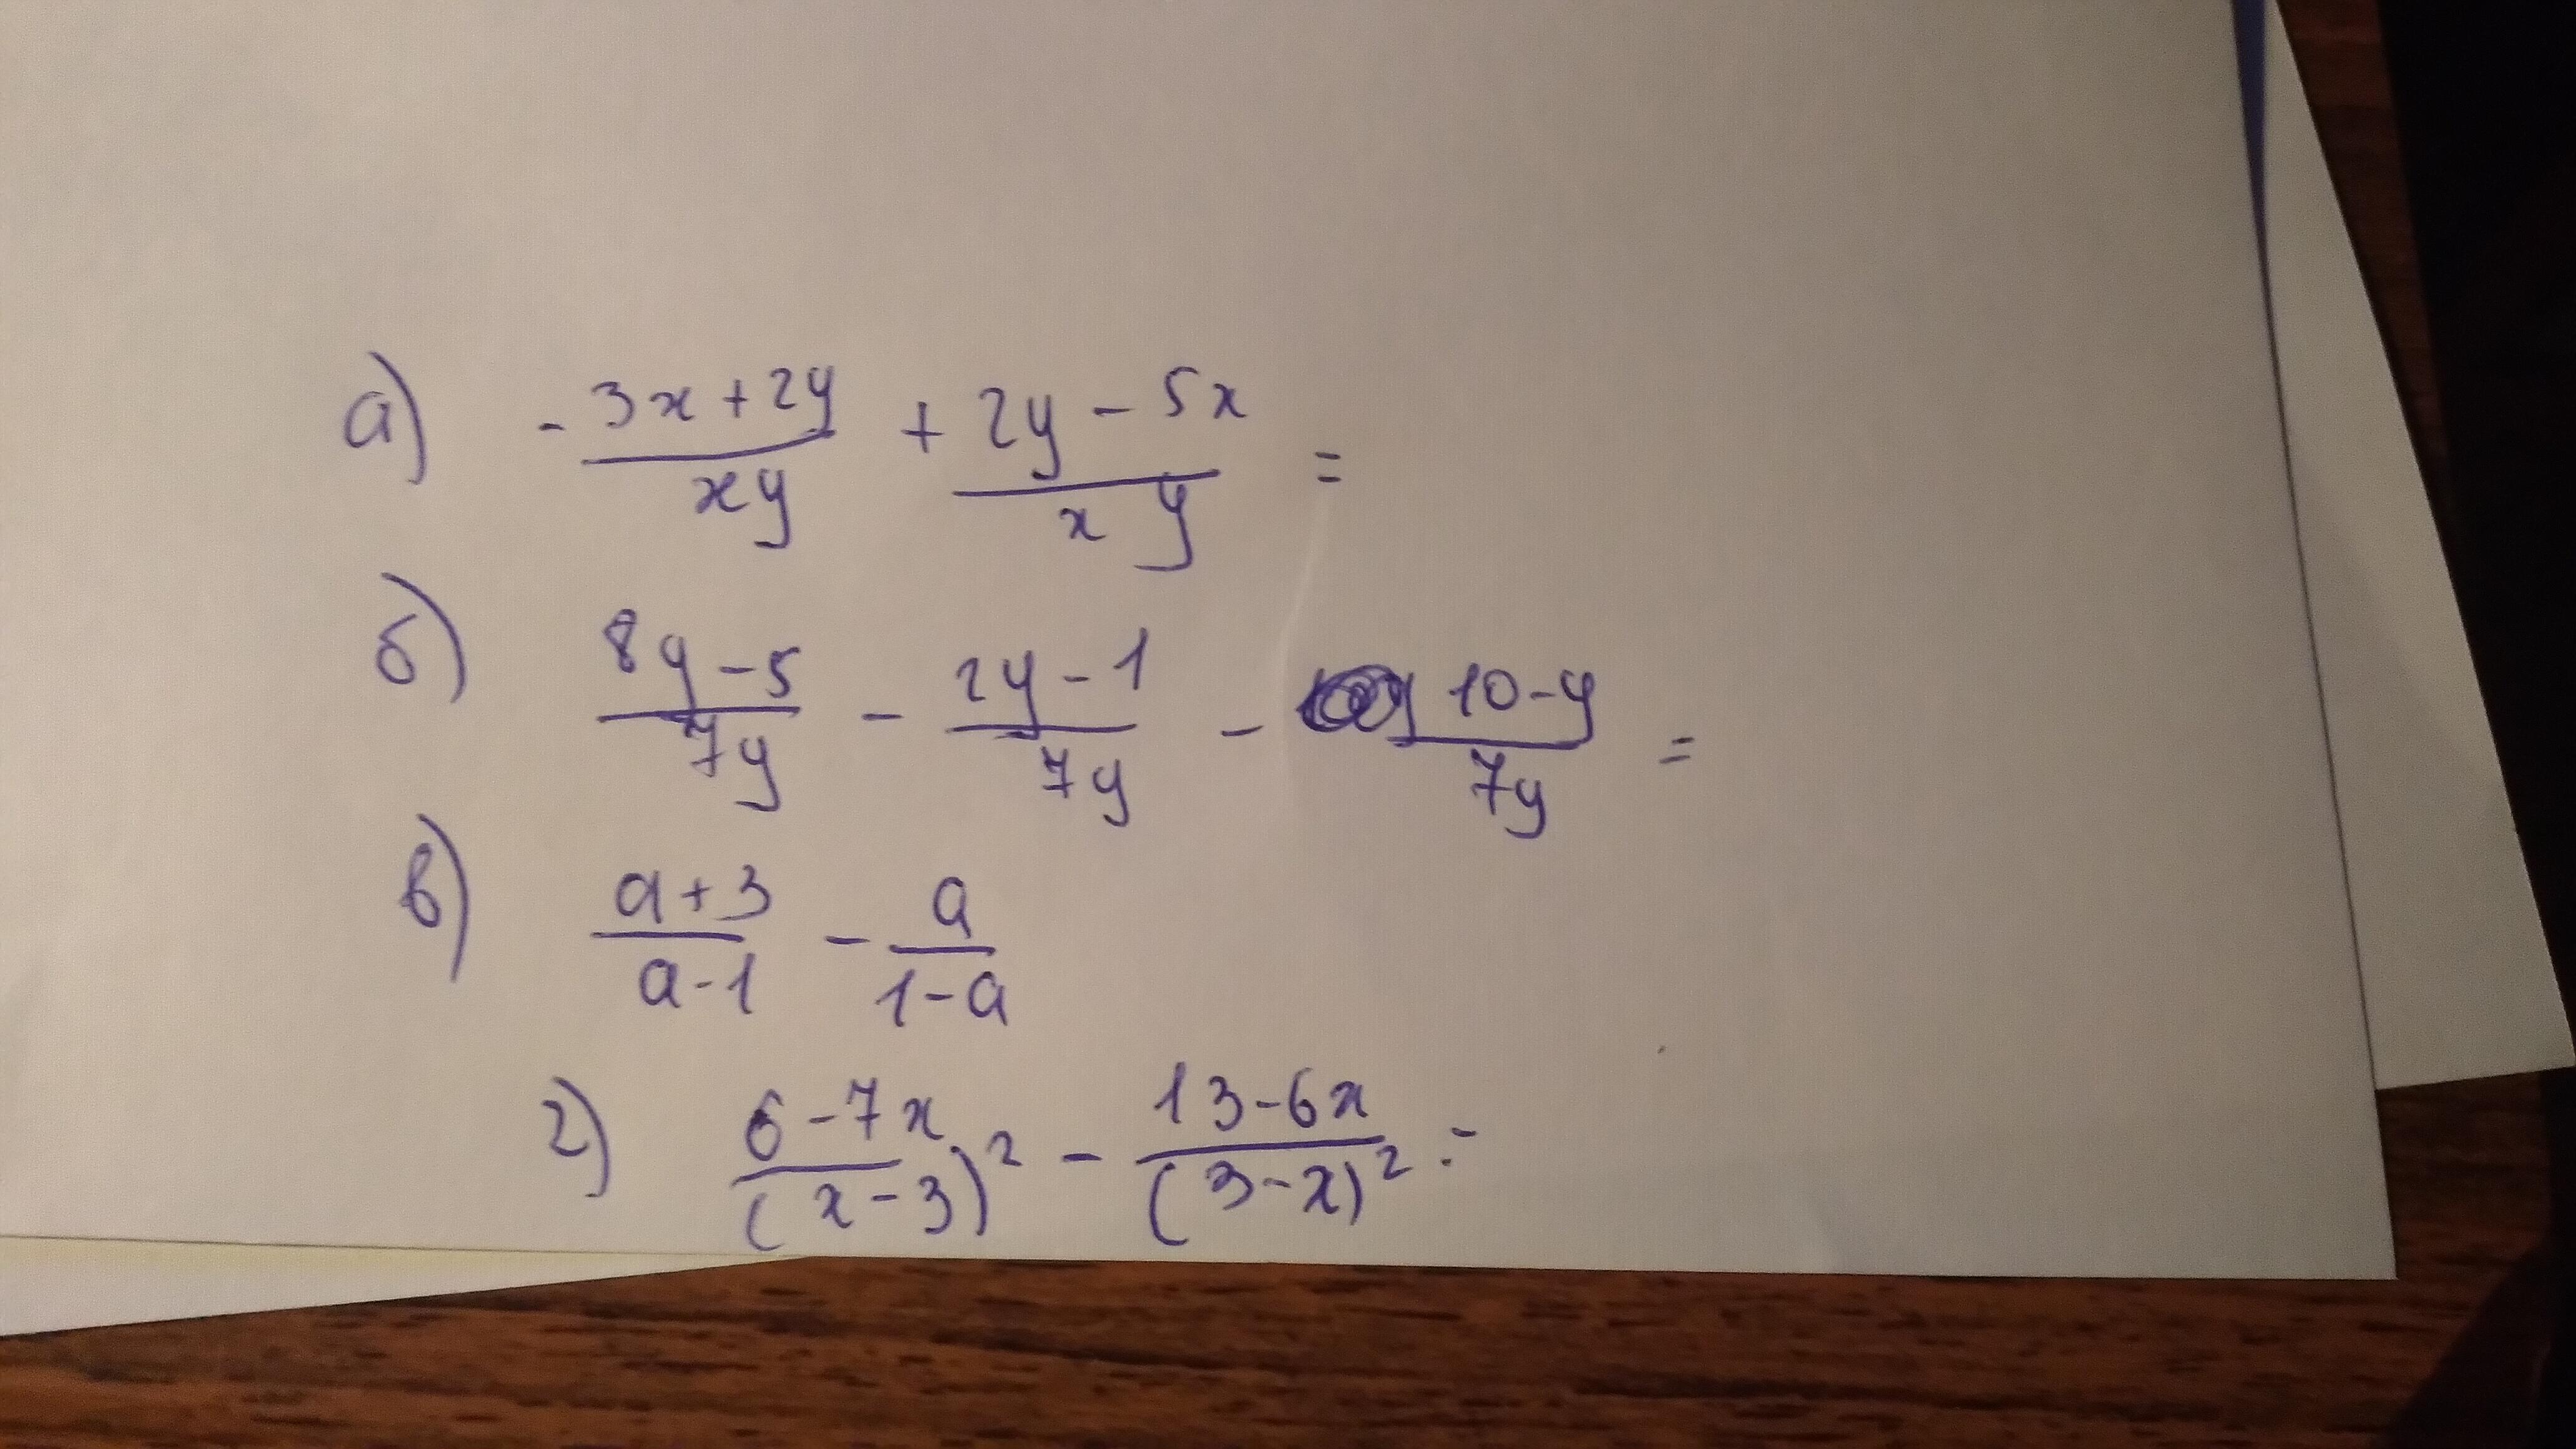 а) - (3x+2y)/(xy) + (2y-5x)/(xy) =
б) (8y-5)/(7y) - (2y-1)/(7y) - (10-y)/(7y) =
в) (a+3)/(a-1) - a/(1-a)
г) (6-7x)/(x-3)² - (13-6x)/(3-x)² =